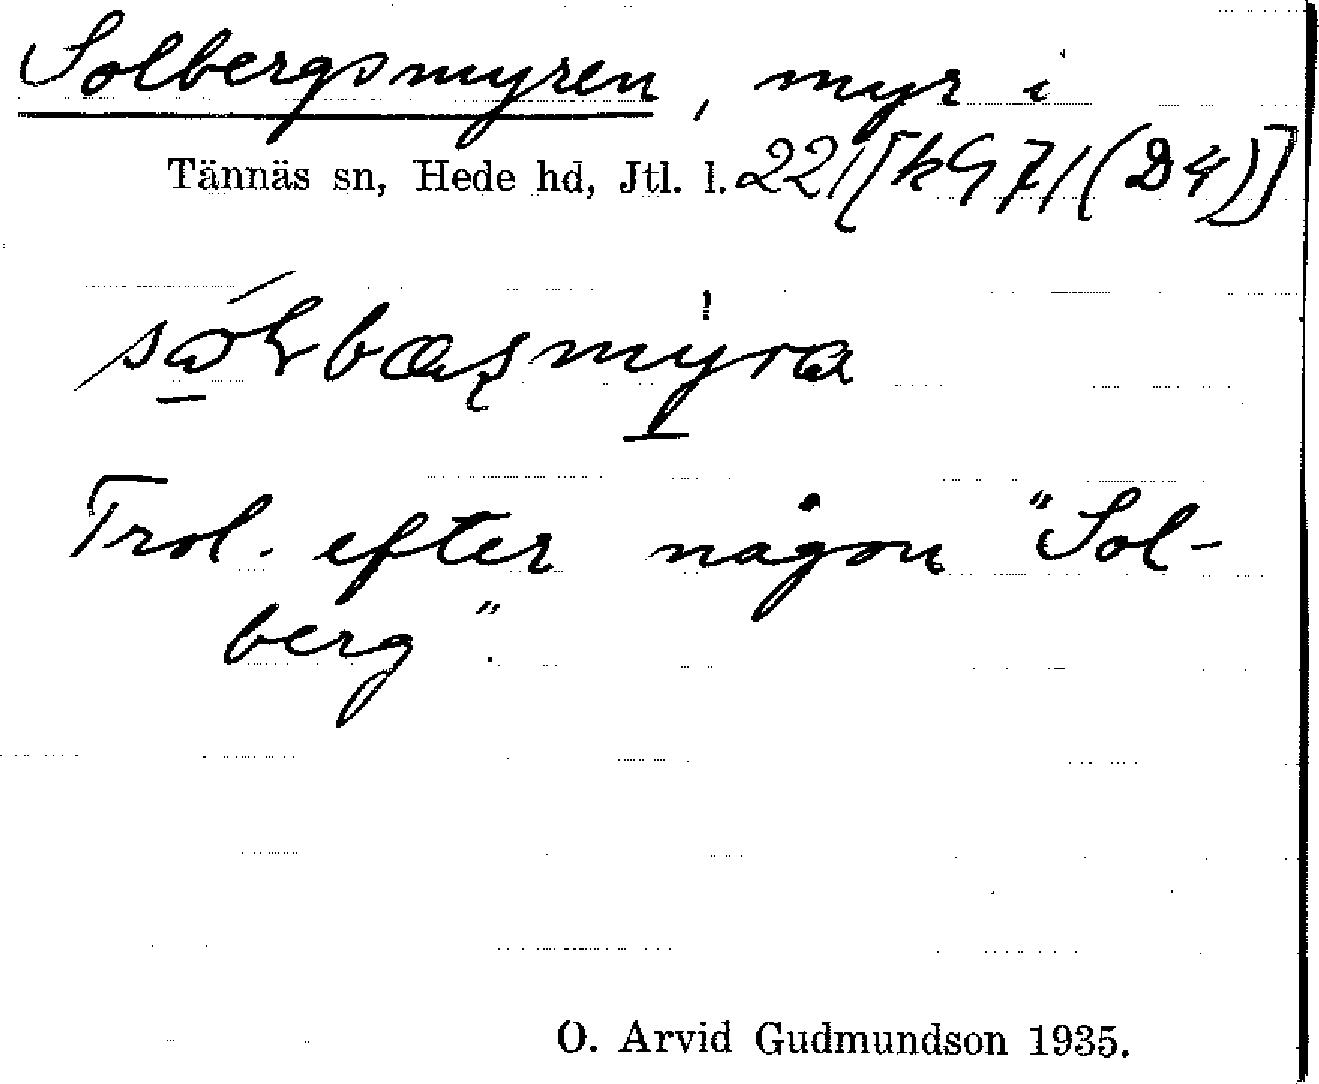 Solbergsmyren, myr i
Tännäs sn, Hede hd, Jtl. l. 22/[k 97/(D4)]
Trol. efter någon "Sol-
berg".
O. Arvid Gudmundson 1935.